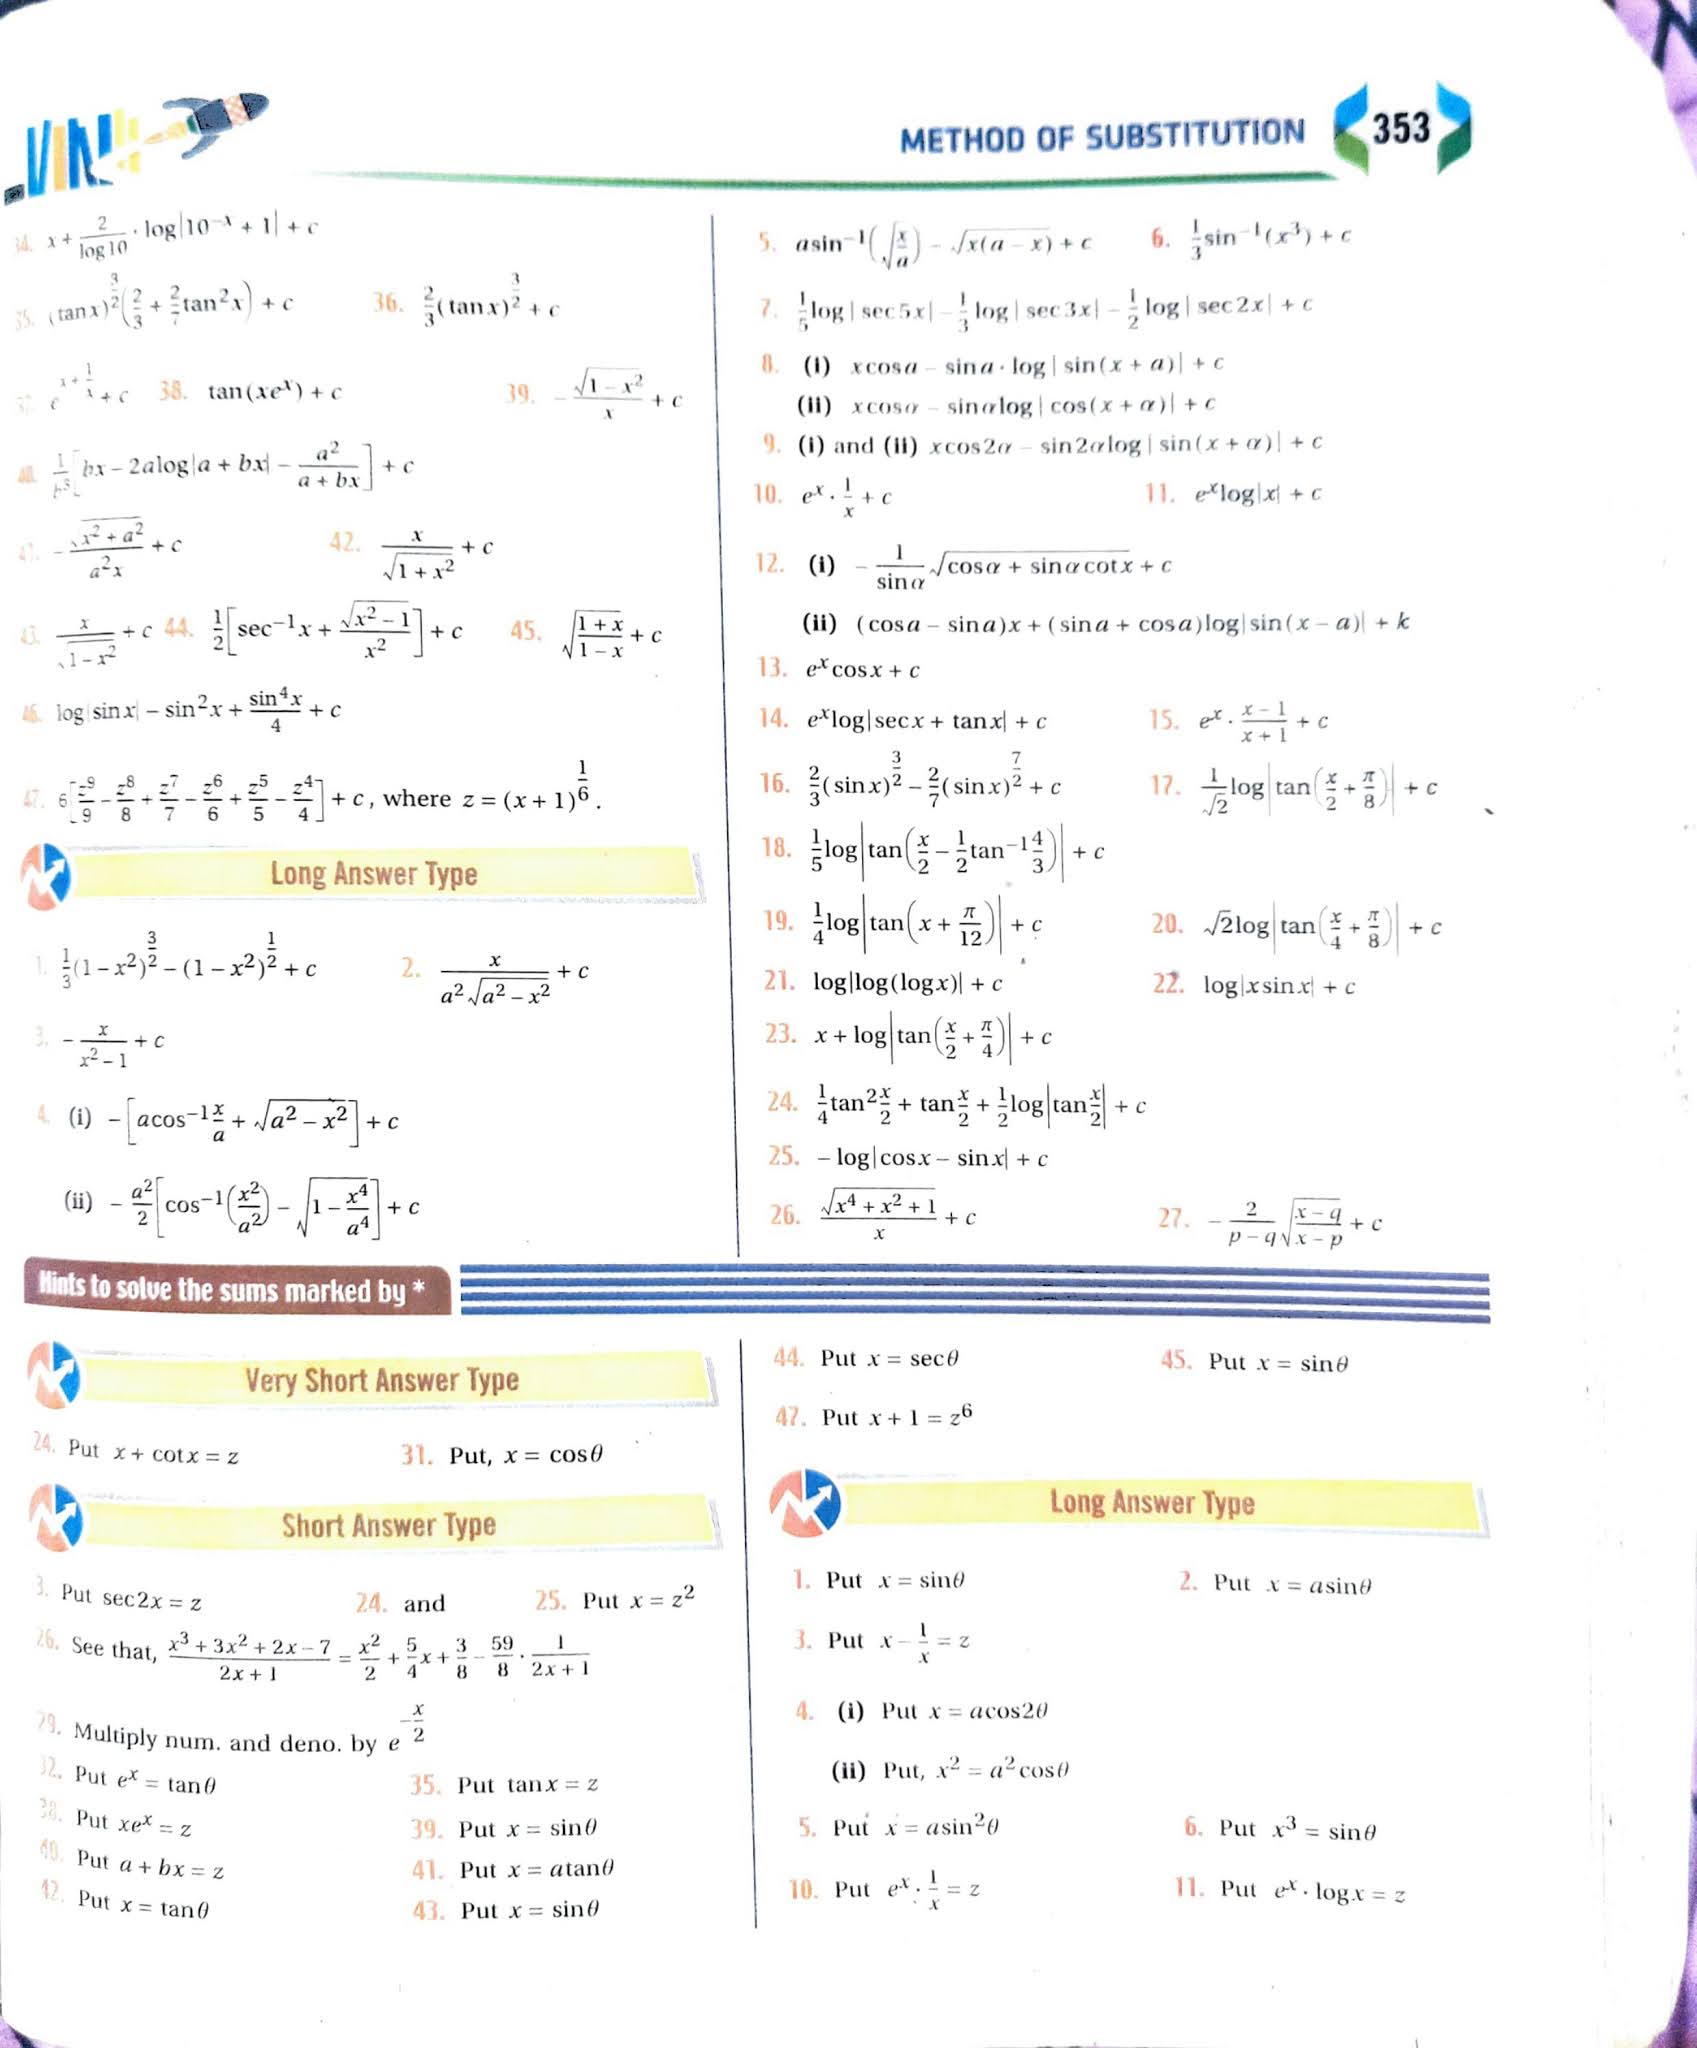 METHOD OF SUBSTITUTION 353
34. x + 2/log10 · log|10^-x + 1| + c
35. (tanx)^(3/2) (2/3 + 2/7 tan²x) + c 36. 2/3 (tanx)^(3/2) + c
37. e^(x + 1/x) + c 38. tan(xe^x) + c 39. - √(1 - x²)/x + c
40. 1/b³ [bx - 2alog|a + bx| - a²/(a + bx)] + c
41. - √(x² + a²)/(a²x) + c 42. x/√(1 + x²) + c
43. x/√(1 - x²) + c 44. 1/2 [sec⁻¹x + √(x² - 1)/x²] + c 45. √((1 + x)/(1 - x)) + c
46. log|sinx| - sin²x + sin⁴x/4 + c
47. 6[z⁹/9 - z⁸/8 + z⁷/7 - z⁶/6 + z⁵/5 - z⁴/4] + c, where z = (x + 1)^(1/6).
Long Answer Type
1. 1/3 (1 - x²)^(3/2) - (1 - x²)^(1/2) + c 2. x/(a²√(a² - x²)) + c
3. - x/(x² - 1) + c
4. (i) - [acos⁻¹ x/a + √(a² - x²)] + c
(ii) - a²/2 [cos⁻¹(x²/a²) - √(1 - x⁴/a⁴)] + c
5. asin⁻¹(√(x/a)) - √(x(a - x)) + c 6. 1/3 sin⁻¹(x³) + c
7. 1/5 log|sec5x| - 1/3 log|sec3x| - 1/2 log|sec2x| + c
8. (i) xcosa - sina · log|sin(x + a)| + c
(ii) xcosα - sinαlog|cos(x + α)| + c
9. (i) and (ii) xcos2α - sin2αlog|sin(x + α)| + c
10. e^x · 1/x + c 11. e^x log|x| + c
12. (i) - 1/sinα √(cosα + sinαcotx) + c
(ii) (cosa - sina)x + (sina + cosa)log|sin(x - a)| + k
13. e^x cosx + c
14. e^x log|secx + tanx| + c 15. e^x · (x - 1)/(x + 1) + c
16. 2/3 (sinx)^(3/2) - 2/7 (sinx)^(7/2) + c 17. 1/√2 log|tan(x/2 + π/8)| + c
18. 1/5 log|tan(x/2 - 1/2 tan⁻¹ 4/3)| + c
19. 1/4 log|tan(x + π/12)| + c 20. √2log|tan(x/4 + π/8)| + c
21. log|log(logx)| + c 22. log|xsinx| + c
23. x + log|tan(x/2 + π/4)| + c
24. 1/4 tan² x/2 + tan x/2 + 1/2 log|tan x/2| + c
25. - log|cosx - sinx| + c
26. √(x⁴ + x² + 1)/x + c 27. - 2/(p - q) √((x - q)/(x - p)) + c
Hints to solve the sums marked by *
Very Short Answer Type
24. Put x + cotx = z 31. Put, x = cosθ
Short Answer Type
3. Put sec2x = z 24. and 25. Put x = z²
26. See that, (x³ + 3x² + 2x - 7)/(2x + 1) = x²/2 + 5/4 x + 3/8 - 59/8 · 1/(2x + 1)
29. Multiply num. and deno. by e^(-x/2)
32. Put e^x = tanθ 35. Put tanx = z
38. Put xe^x = z 39. Put x = sinθ
40. Put a + bx = z 41. Put x = atanθ
42. Put x = tanθ 43. Put x = sinθ
44. Put x = secθ 45. Put x = sinθ
47. Put x + 1 = z⁶
Long Answer Type
1. Put x = sinθ 2. Put x = asinθ
3. Put x - 1/x = z
4. (i) Put x = acos2θ
(ii) Put, x² = a²cosθ
5. Put x = asin²θ 6. Put x³ = sinθ
10. Put e^x · 1/x = z 11. Put e^x · logx = z